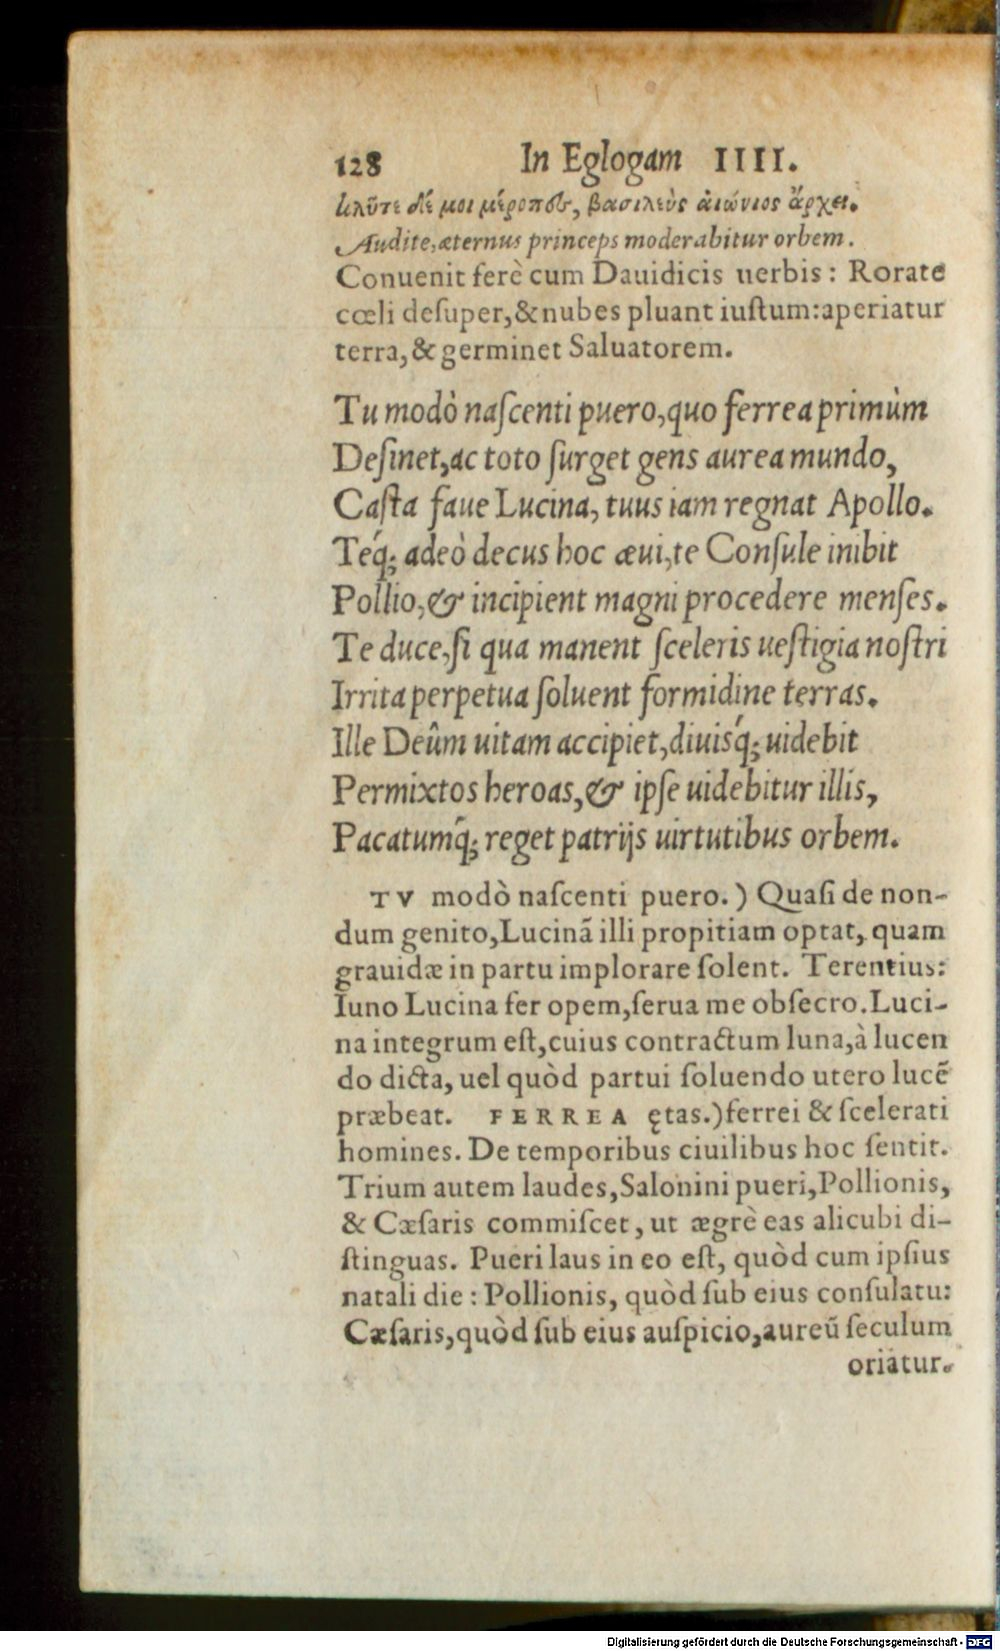 128 In Eglogam IIII.
κλῦτε δέ μοι μέροπες, βασιλεὺς αἰώνιος ἄρχει.
Audite, æternus princeps moderabitur orbem.
Conuenit ferè cum Dauidicis uerbis: Rorate
cœli deſuper, & nubes pluant iuſtum: aperiatur
terra, & germinet Saluatorem.
Tu modò naſcenti puero, quo ferrea primùm
Deſinet, ac toto ſurget gens aurea mundo,
Caſta faue Lucina, tuus iam regnat Apollo.
Teq́; adeò decus hoc æui, te Conſule inibit
Pollio, & incipient magni procedere menſes.
Te duce, ſi qua manent ſceleris ueſtigia noſtri
Irrita perpetua ſoluent formidine terras.
Ille Deûm uitam accipiet, diuisq́; uidebit
Permixtos heroas, & ipſe uidebitur illis,
Pacatumq́; reget patrijs uirtutibus orbem.
TV modò naſcenti puero.) Quaſi de non-
dum genito, Lucinã illi propitiam optat, quam
grauidæ in partu implorare ſolent. Terentius:
Iuno Lucina fer opem, ſerua me obſecro. Luci-
na integrum eſt, cuius contractum luna, à lucen
do dicta, uel quòd partui ſoluendo utero lucẽ
præbeat. FERREA ętas.) ferrei & ſcelerati
homines. De temporibus ciuilibus hoc ſentit.
Trium autem laudes, Salonini pueri, Pollionis,
& Cæſaris commiſcet, ut ægrè eas alicubi di-
ſtinguas. Pueri laus in eo eſt, quòd cum ipſius
natali die: Pollionis, quòd ſub eius conſulatu:
Cæſaris, quòd ſub eius auſpicio, aureũ ſeculum
oriatur.
Digitalisierung gefördert durch die Deutsche Forschungsgemeinschaft - DFG